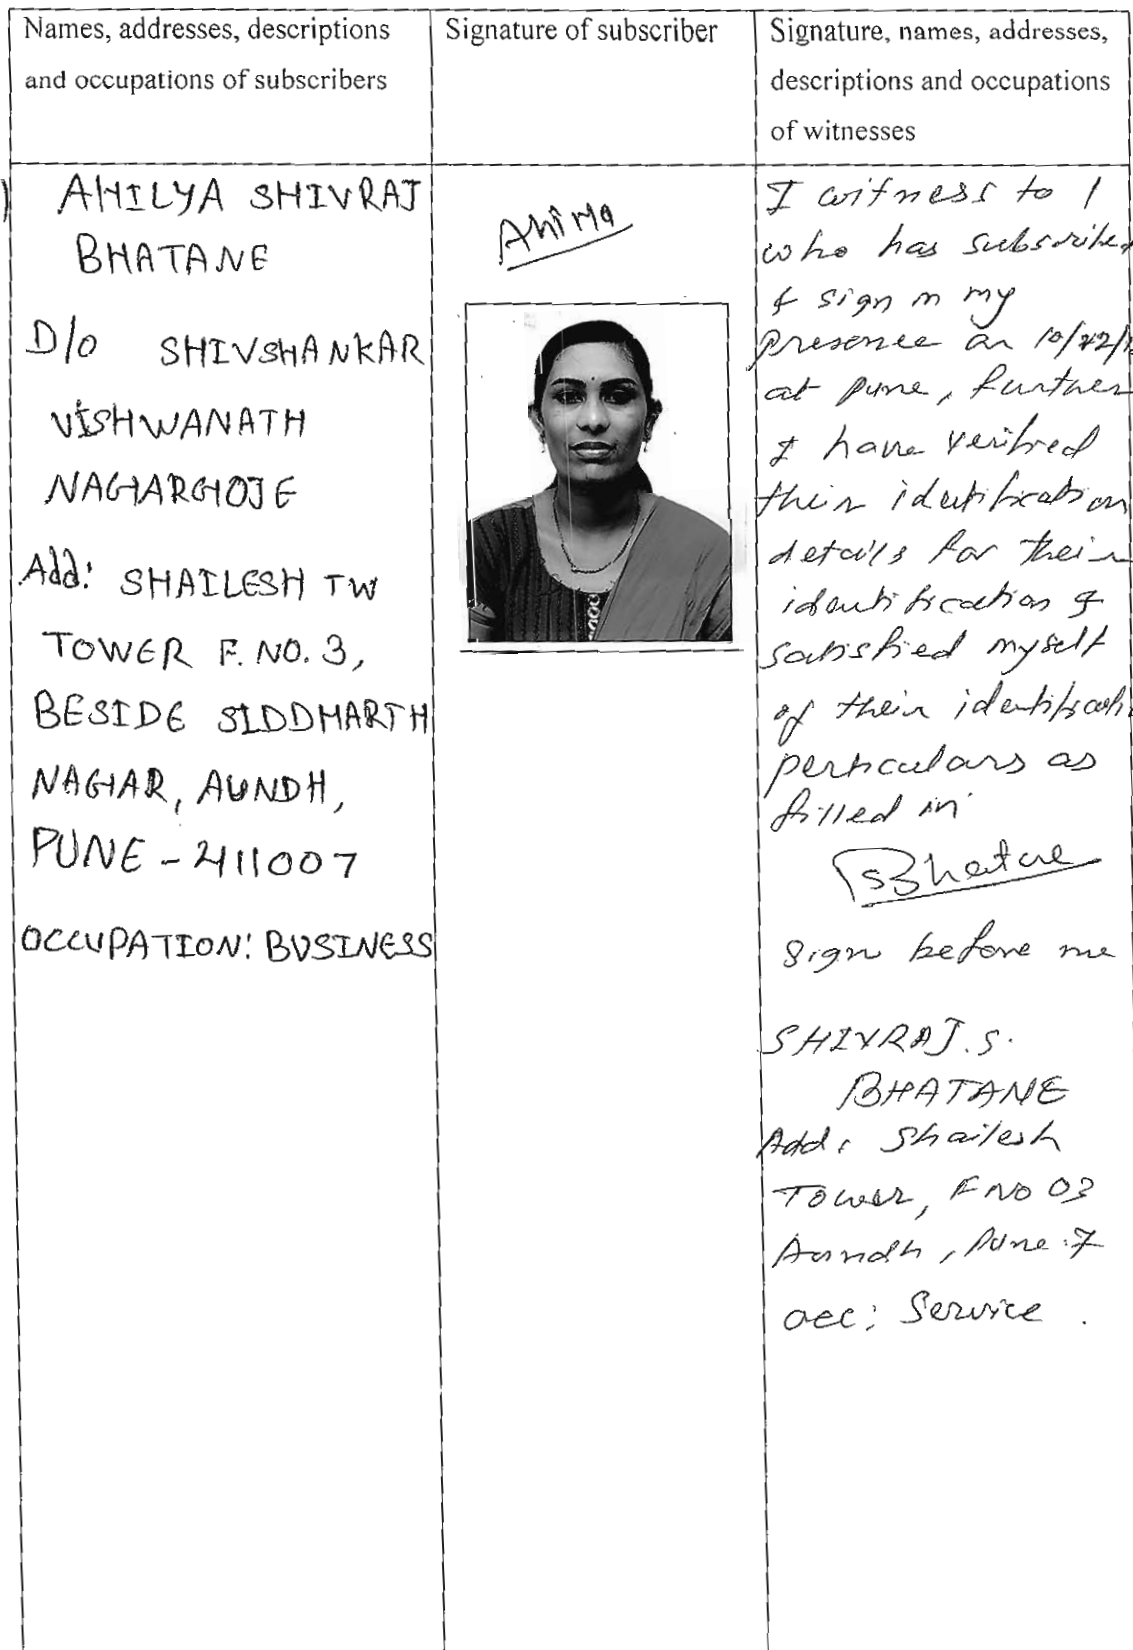 Names, addresses, descriptions
and occupations of subscribers
Signature of subscriber
Signature, names, addresses,
descriptions and occupations
of witnesses
AHILYA SHIVRAJ
BHATANE
D/o SHIVSHANKAR
VISHWANATH
NAGARGOJE
Add: SHAILESH TW
TOWER F. NO. 3,
BESIDE SIDDHARTH
NAGAR, AUNDH,
PUNE - 411007
OCCUPATION: BUSINESS
I witness to 1
who has subscribed
& sign in my
presence on
at pune, further
I have verified
their identification
details for their
identification &
satisfied myself
of their
perticulars as
filled in
SBhatane
sign before me
SHIVRAJ. S.
BHATANE
Add: Shailesh
Tower, F NO 03
Aundh, Pune-7
occ: Service.